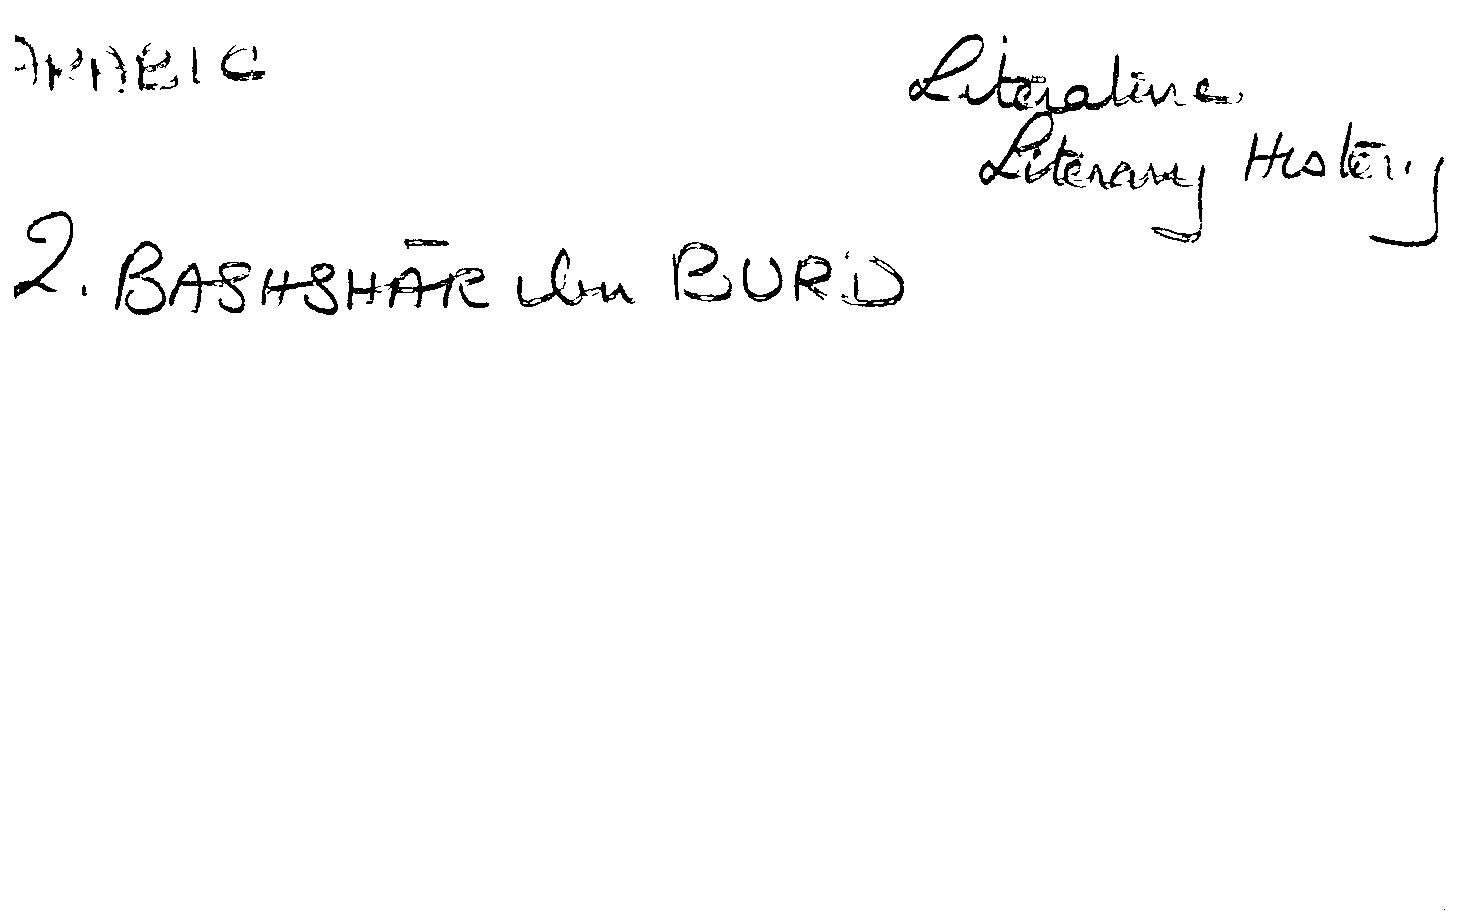 ARABIC
Literature
Literary History
2. BASHSHĀR ibn BURD